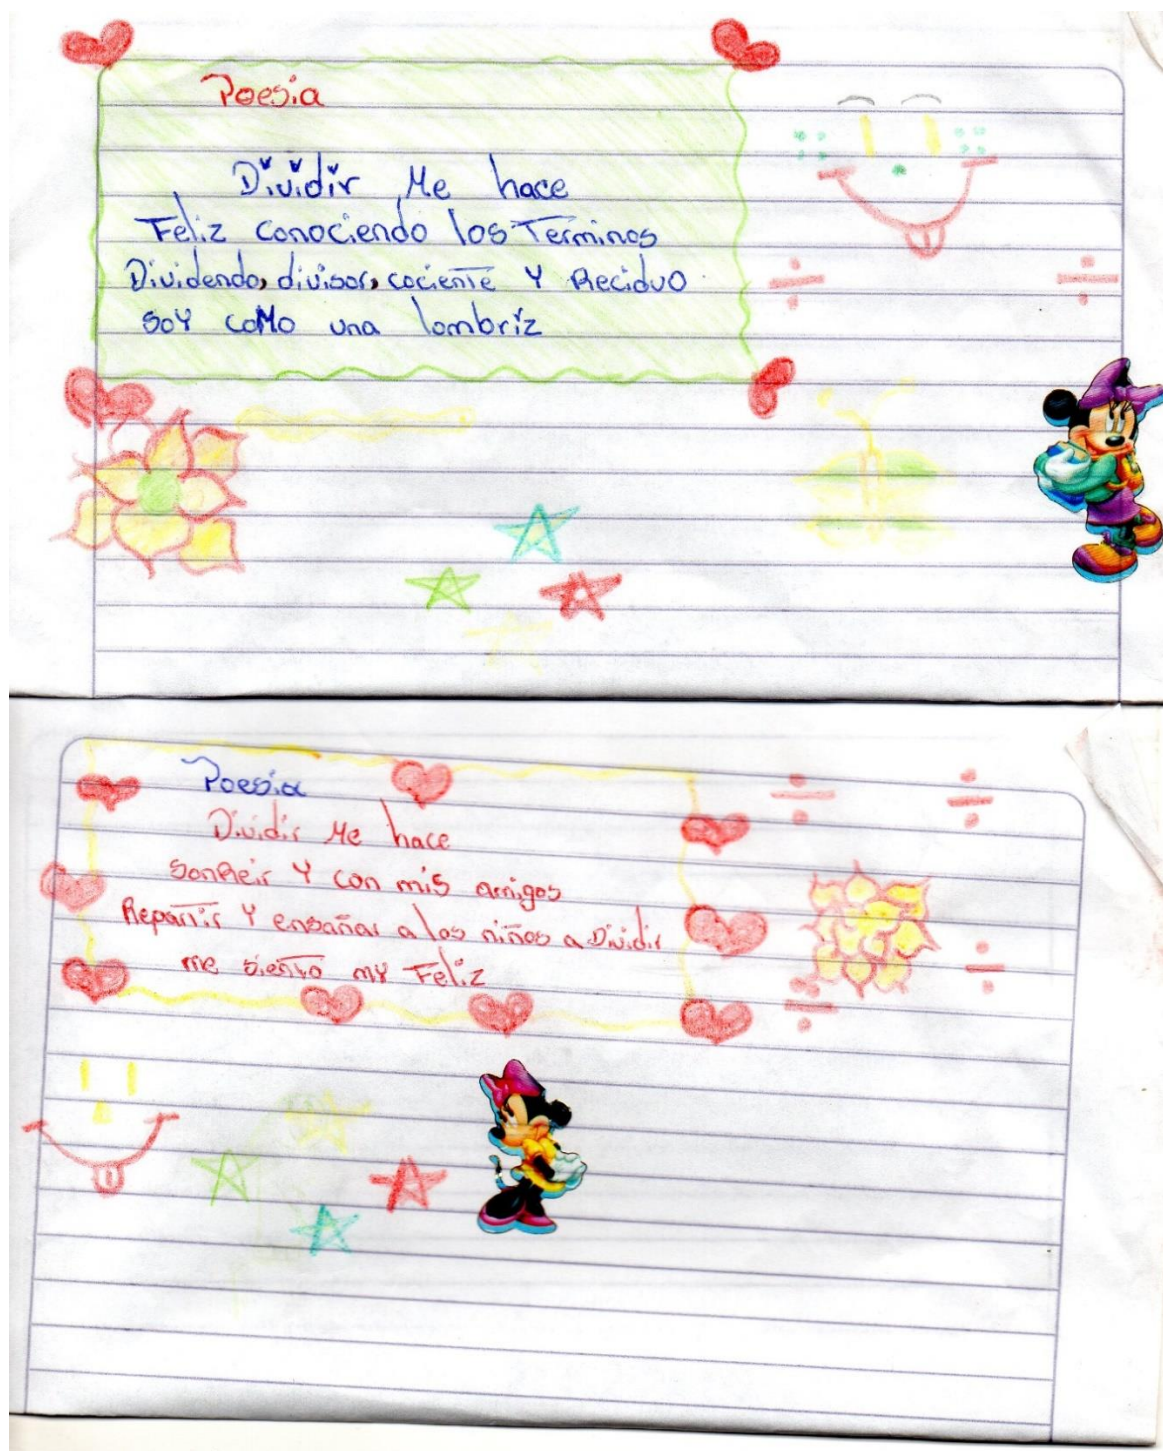 Poesia
Dividir Me hace
Feliz conociendo los Terminos
Dividendo, divisor, cociente Y Reciduo
soY coMo una lombriz
Poesia
Dividir Me hace
sonReir Y con mis amigos
Repartir Y enseñar a los niños a Dividir
me siento mY Feliz